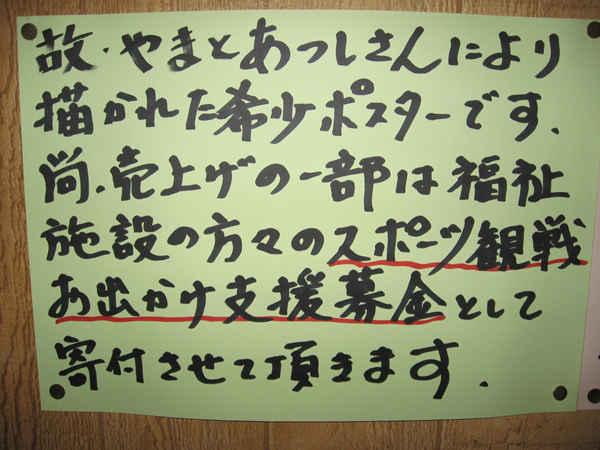 故・やまとあつしさんにより
描かれた希少ポスターです.
尚.売上げの一部は福祉
施設の方々のスポーツ観戦
お出かけ支援募金として
寄付させて頂きます.